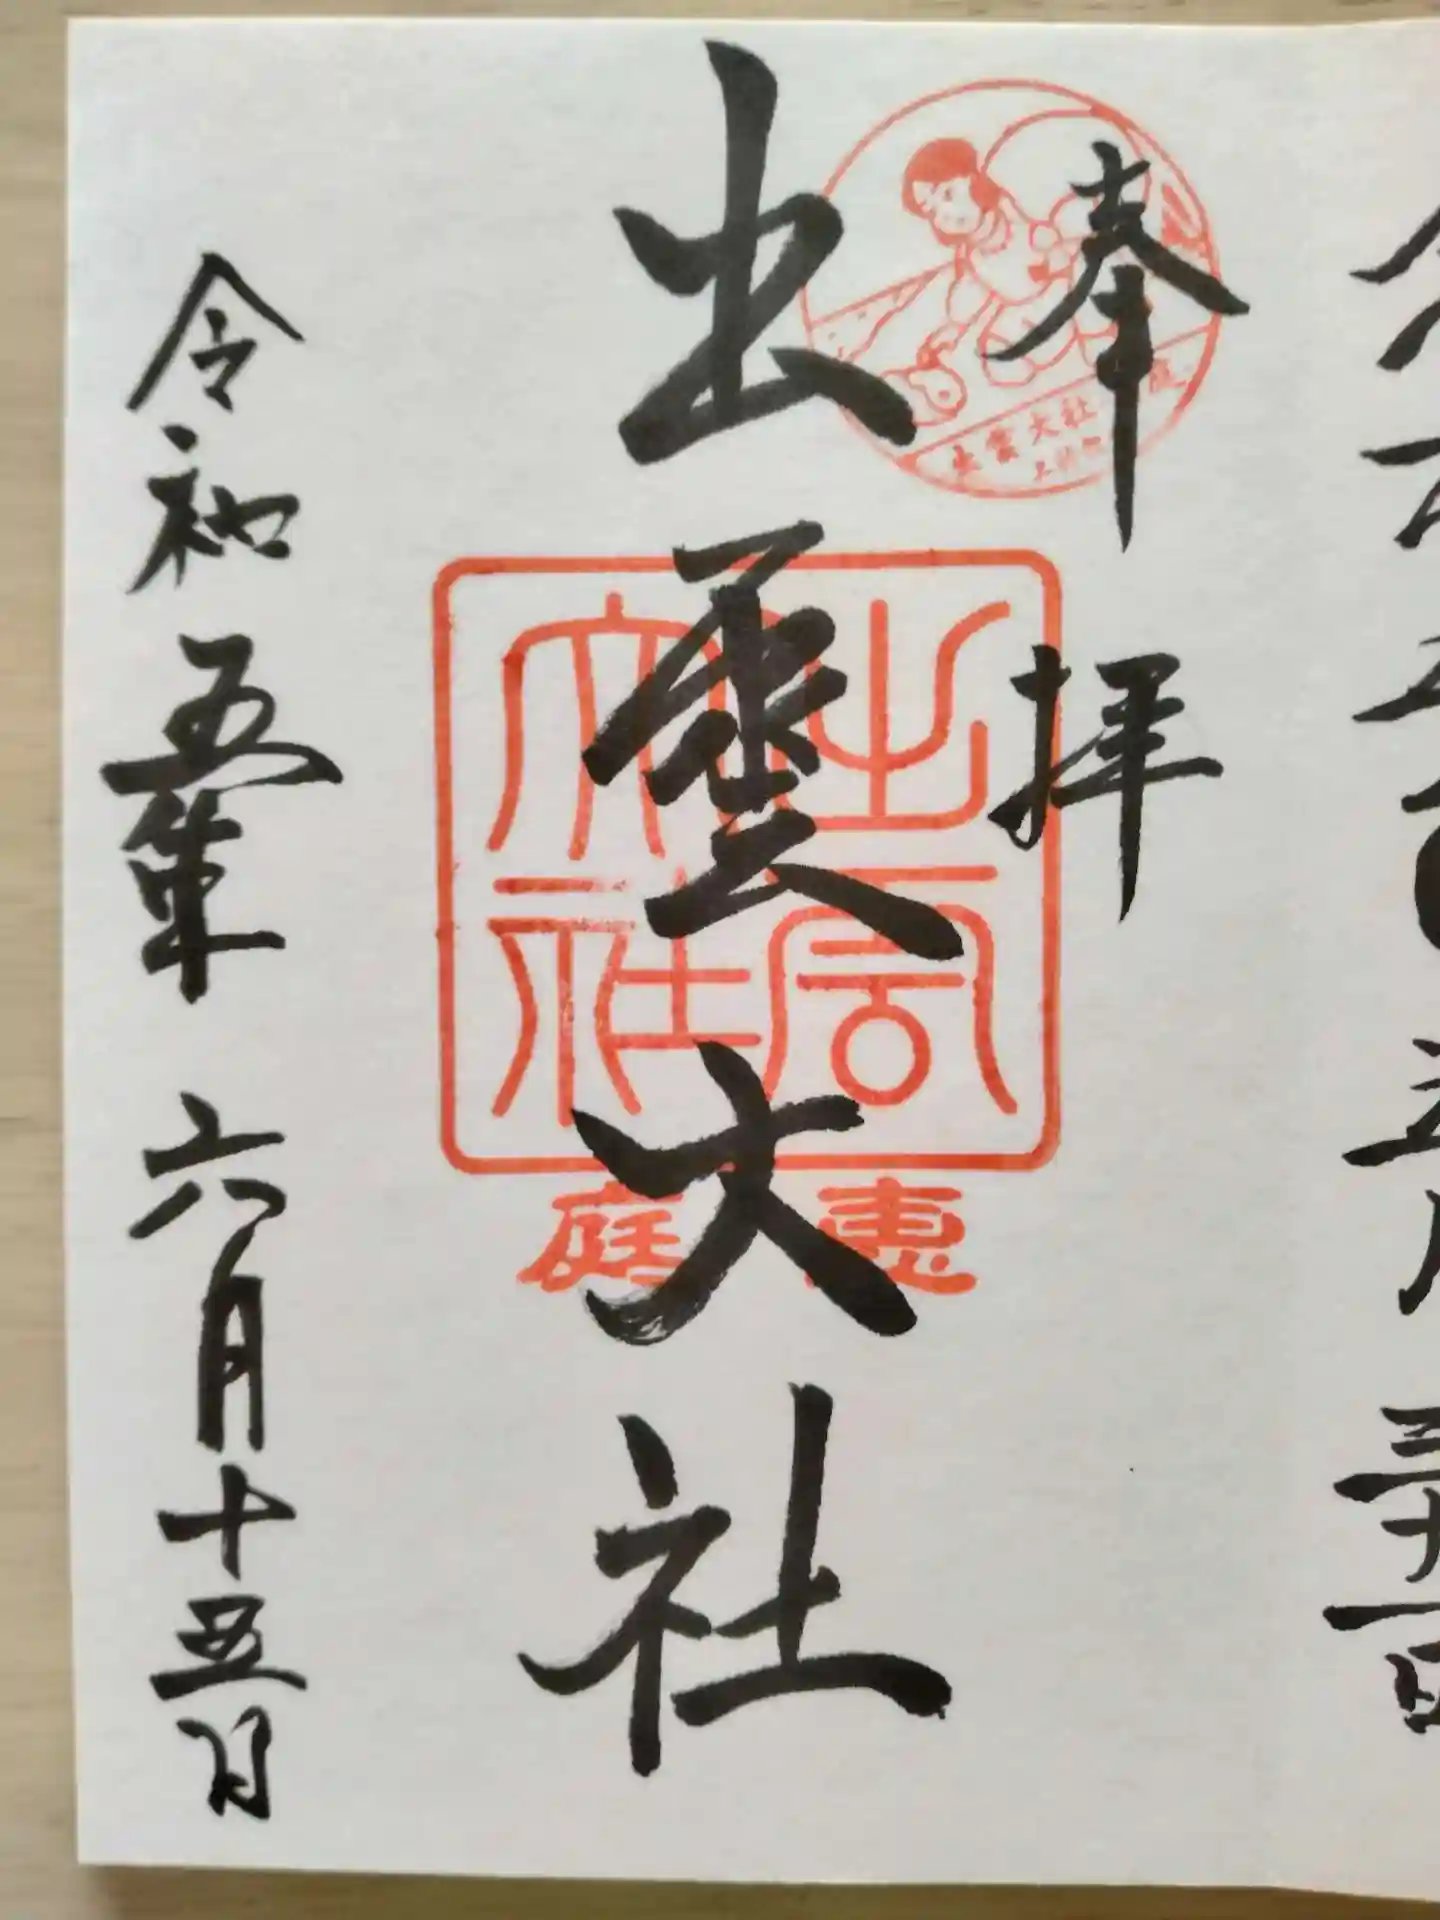 奉拝
出雲大社
出雲大社
惠庭
出雲大社
令和五年六月十五日